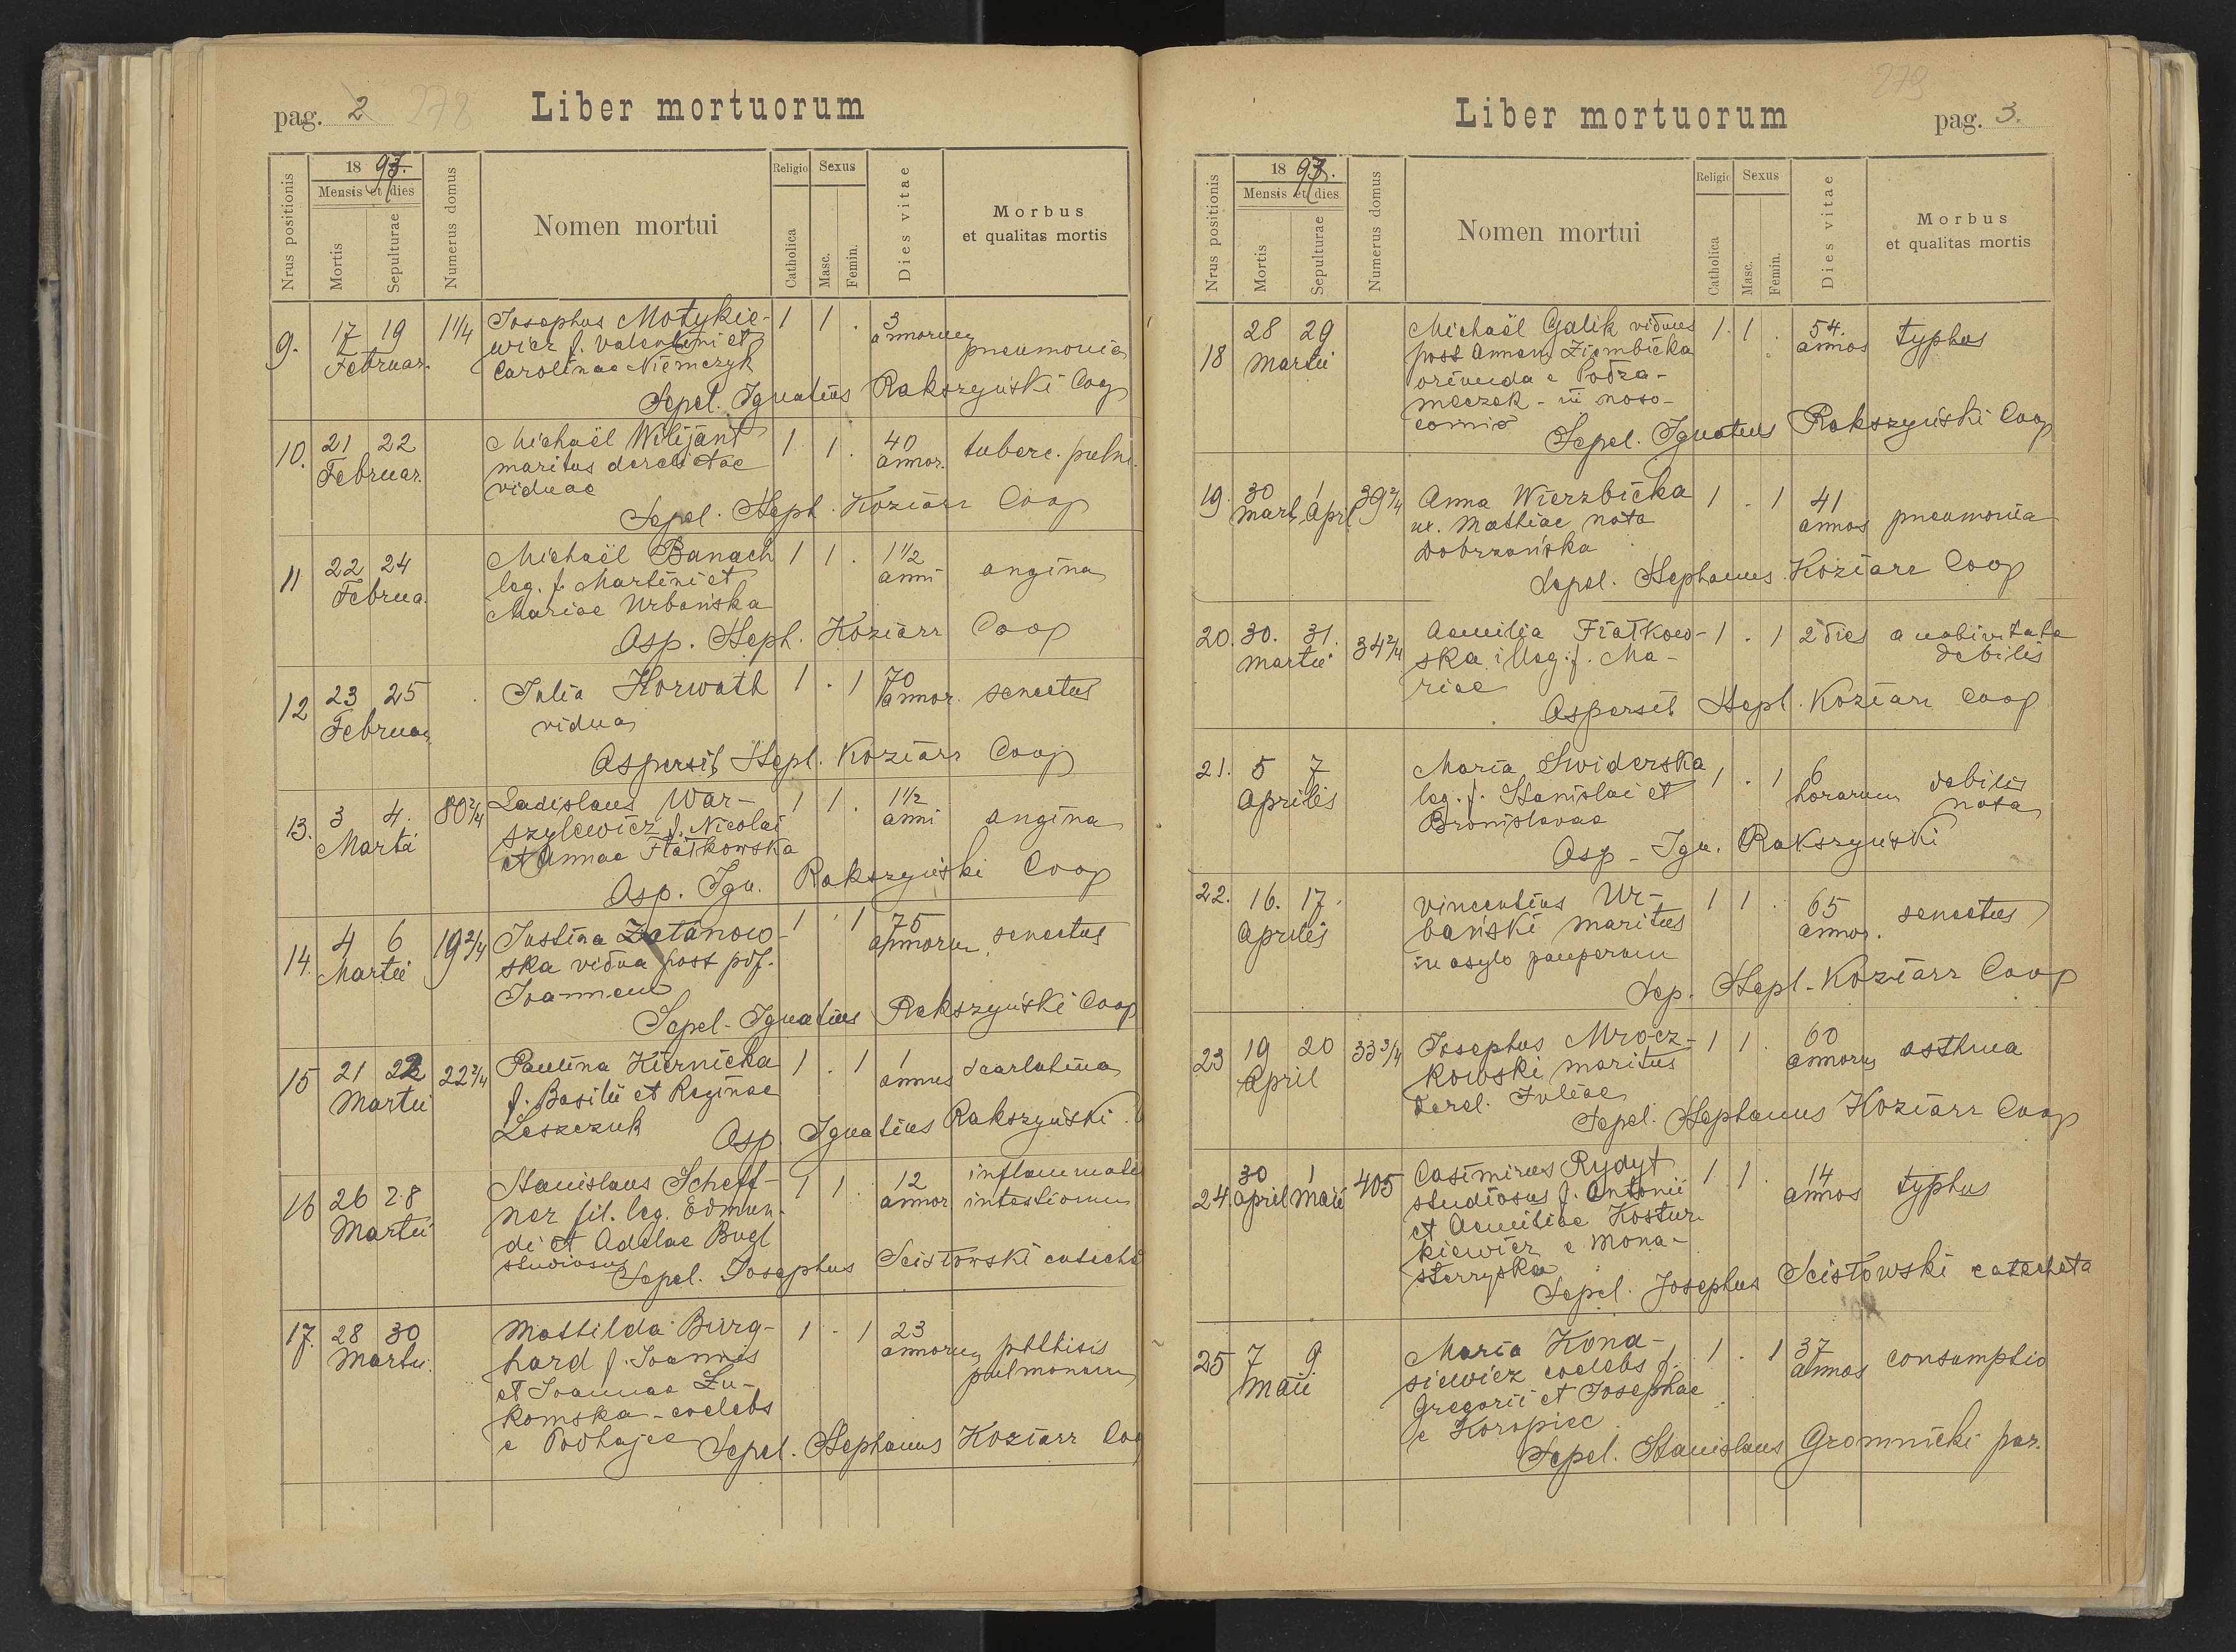 pag. 2 278 Liber mortuorum
Nrus positionis
18 97.
Mensis et dies
Mortis
Sepulturae
Numerus domus
Nomen mortui
Religio
Catholica
Sexus
Masc.
Femin.
Dies vitae
Morbus
et qualitas mortis
9. 17 19 1 1/4 Josephus Motykie- 1 1 . 3
Februar. wicz f. Valentini et annorum pneumonia
Carolinae Niemczyk
Sepel. Ignatius Rakszyński Coop
10. 21 22 Michaël Wilijant 1 1 . 40 tuberc. pulm.
Februar. maritus derelictae annor.
viduae
Sepel. Steph. Koziarz Coop
11 22 24 Michaël Banach 1 1 . 1 1/2 angina
Februa. leg. f. Martini et anni
Mariae Urbańska
Asp. Steph. Koziarz Coop
12 23 25 Julia Horwath 1 . 1 70 senectus
Februar. vidua annor.
Aspersit Steph. Koziarz Coop
13. 3 4. 80 2/4 Ladislaus War- 1 1 . 1 1/2 angina
Martii szylewicz f. Nicolai anni
et Annae Fiałkowska
Asp. Ign. Rakszyński Coop
14. 4 6 19 2/4 Justina Zatanow- 1 . 1 75 senectus
Martii ska vidua post pdf. annorum
Joannem
Sepel. Ignatius Rakszyński Coop
15 21 22 22 2/4 Paulina Kiernicka 1 . 1 1 scarlatina
Martii f. Basilii et Reginae annus
Leszczuk
Asp. Ignatius Rakszyński
16 26 28 Stanislaus Scheff- 1 1 . 12
Martii ner fil. leg. Edmun- annor intestinorum
di et Adelae Bugl
studiosus
Sepel. Josephus Scisłowski
17. 28 30 Mathilda Burg- 1 . 1 23 phthisis
Martii. hard f. Joannis annorum pulmonum
et Joannae Łu-
komska - coelebs
e Podhajce
Sepel. Stephanus Koziarz
279
Liber mortuorum pag. 3.
Nrus positionis
18 97.
Mensis et dies
Mortis
Sepulturae
Numerus domus
Nomen mortui
Religio
Catholica
Sexus
Masc.
Femin.
Dies vitae
Morbus
et qualitas mortis
18 28 29 Michaël Galik viduus 1. 1 . 54. typhus
Martii post Annam Ziembicka annos
oriunda e Podza-
meczek - in noso-
comio
Sepel. Ignatius Rakszyński Coop
19. 30 1 39 2/4 Anna Wierzbicka 1 . 1 41 pneumonia
Mart. Apr. ux. Mathiae nata annos
Dobrzańska
Sepel. Stephanus Koziarz Coop
20. 30. 31. 34 2/4 Aemilia Fiałkow- 1 . 1 2 dies a nativitate
Martii ska illeg. f. Ma- debilis
riae
Aspersit Steph. Koziarz Coop
21. 5 7 Maria Swiderska 1 . 1 6 debilis
Aprilis leg. f. Stanislai et horarum nata
Bronislavae
Asp. Ign. Rakszyński
22. 16. 17. Vincentius Ur- 1 1 . 65 senectus
Aprilis bański maritus annor.
in asylo pauperum
Sep. Steph. Koziarz Coop
23 19 20 33 3/4 Josephus Mrocz- 1 1 . 60 asthma
April kowski maritus annorum
derel. Juliae
Sepel. Stephanus Koziarz Coop
24. 30 1 405 Casimirus Rydyt 1 1 . 14 typhus
April Maii studiosus f. Antonii annos
et Aemiliae Kostur-
kiewicz e Mona-
sterzyska
Sepel. Josephus Scisłowski catecheta
25 7 9 Maria Kona- 1 . 1 37 consumptio
Maii siewicz coelebs f. annos
Gregorii et Josephae
e Koropiec
Sepel. Stanislaus Gromnicki par.